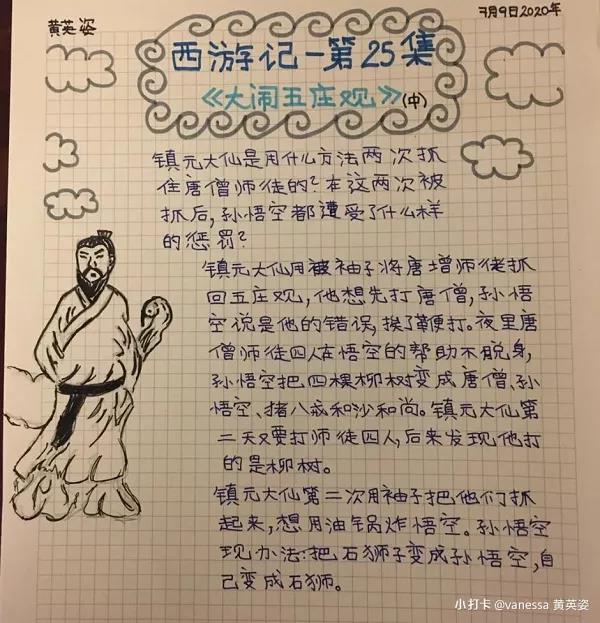 黄英姿
7月9日2020年
西游记-第25集
《大闹五庄观》(中)
镇元大仙是用什么方法两次抓
住唐僧师徒的?在这两次被
抓后,孙悟空都遭受了什么样
的惩罚?
镇元大仙用被袖子将唐增师徒抓
回五庄观,他想先打唐僧,孙悟
空说是他的错误,挨了鞭打。夜里唐
僧师徒四人在悟空的帮助不脱身,
孙悟空把四棵柳树变成唐僧、孙
悟空、猪八戒和沙和尚。镇元大仙第
二天又要打师徒四人,后来发现他打
的是柳树。
镇元大仙第二次用袖子把他们抓
起来,想用油锅炸悟空。孙悟空
现办法:把石狮子变成孙悟空,自
己变成石狮。
小打卡 @vanessa 黄英姿